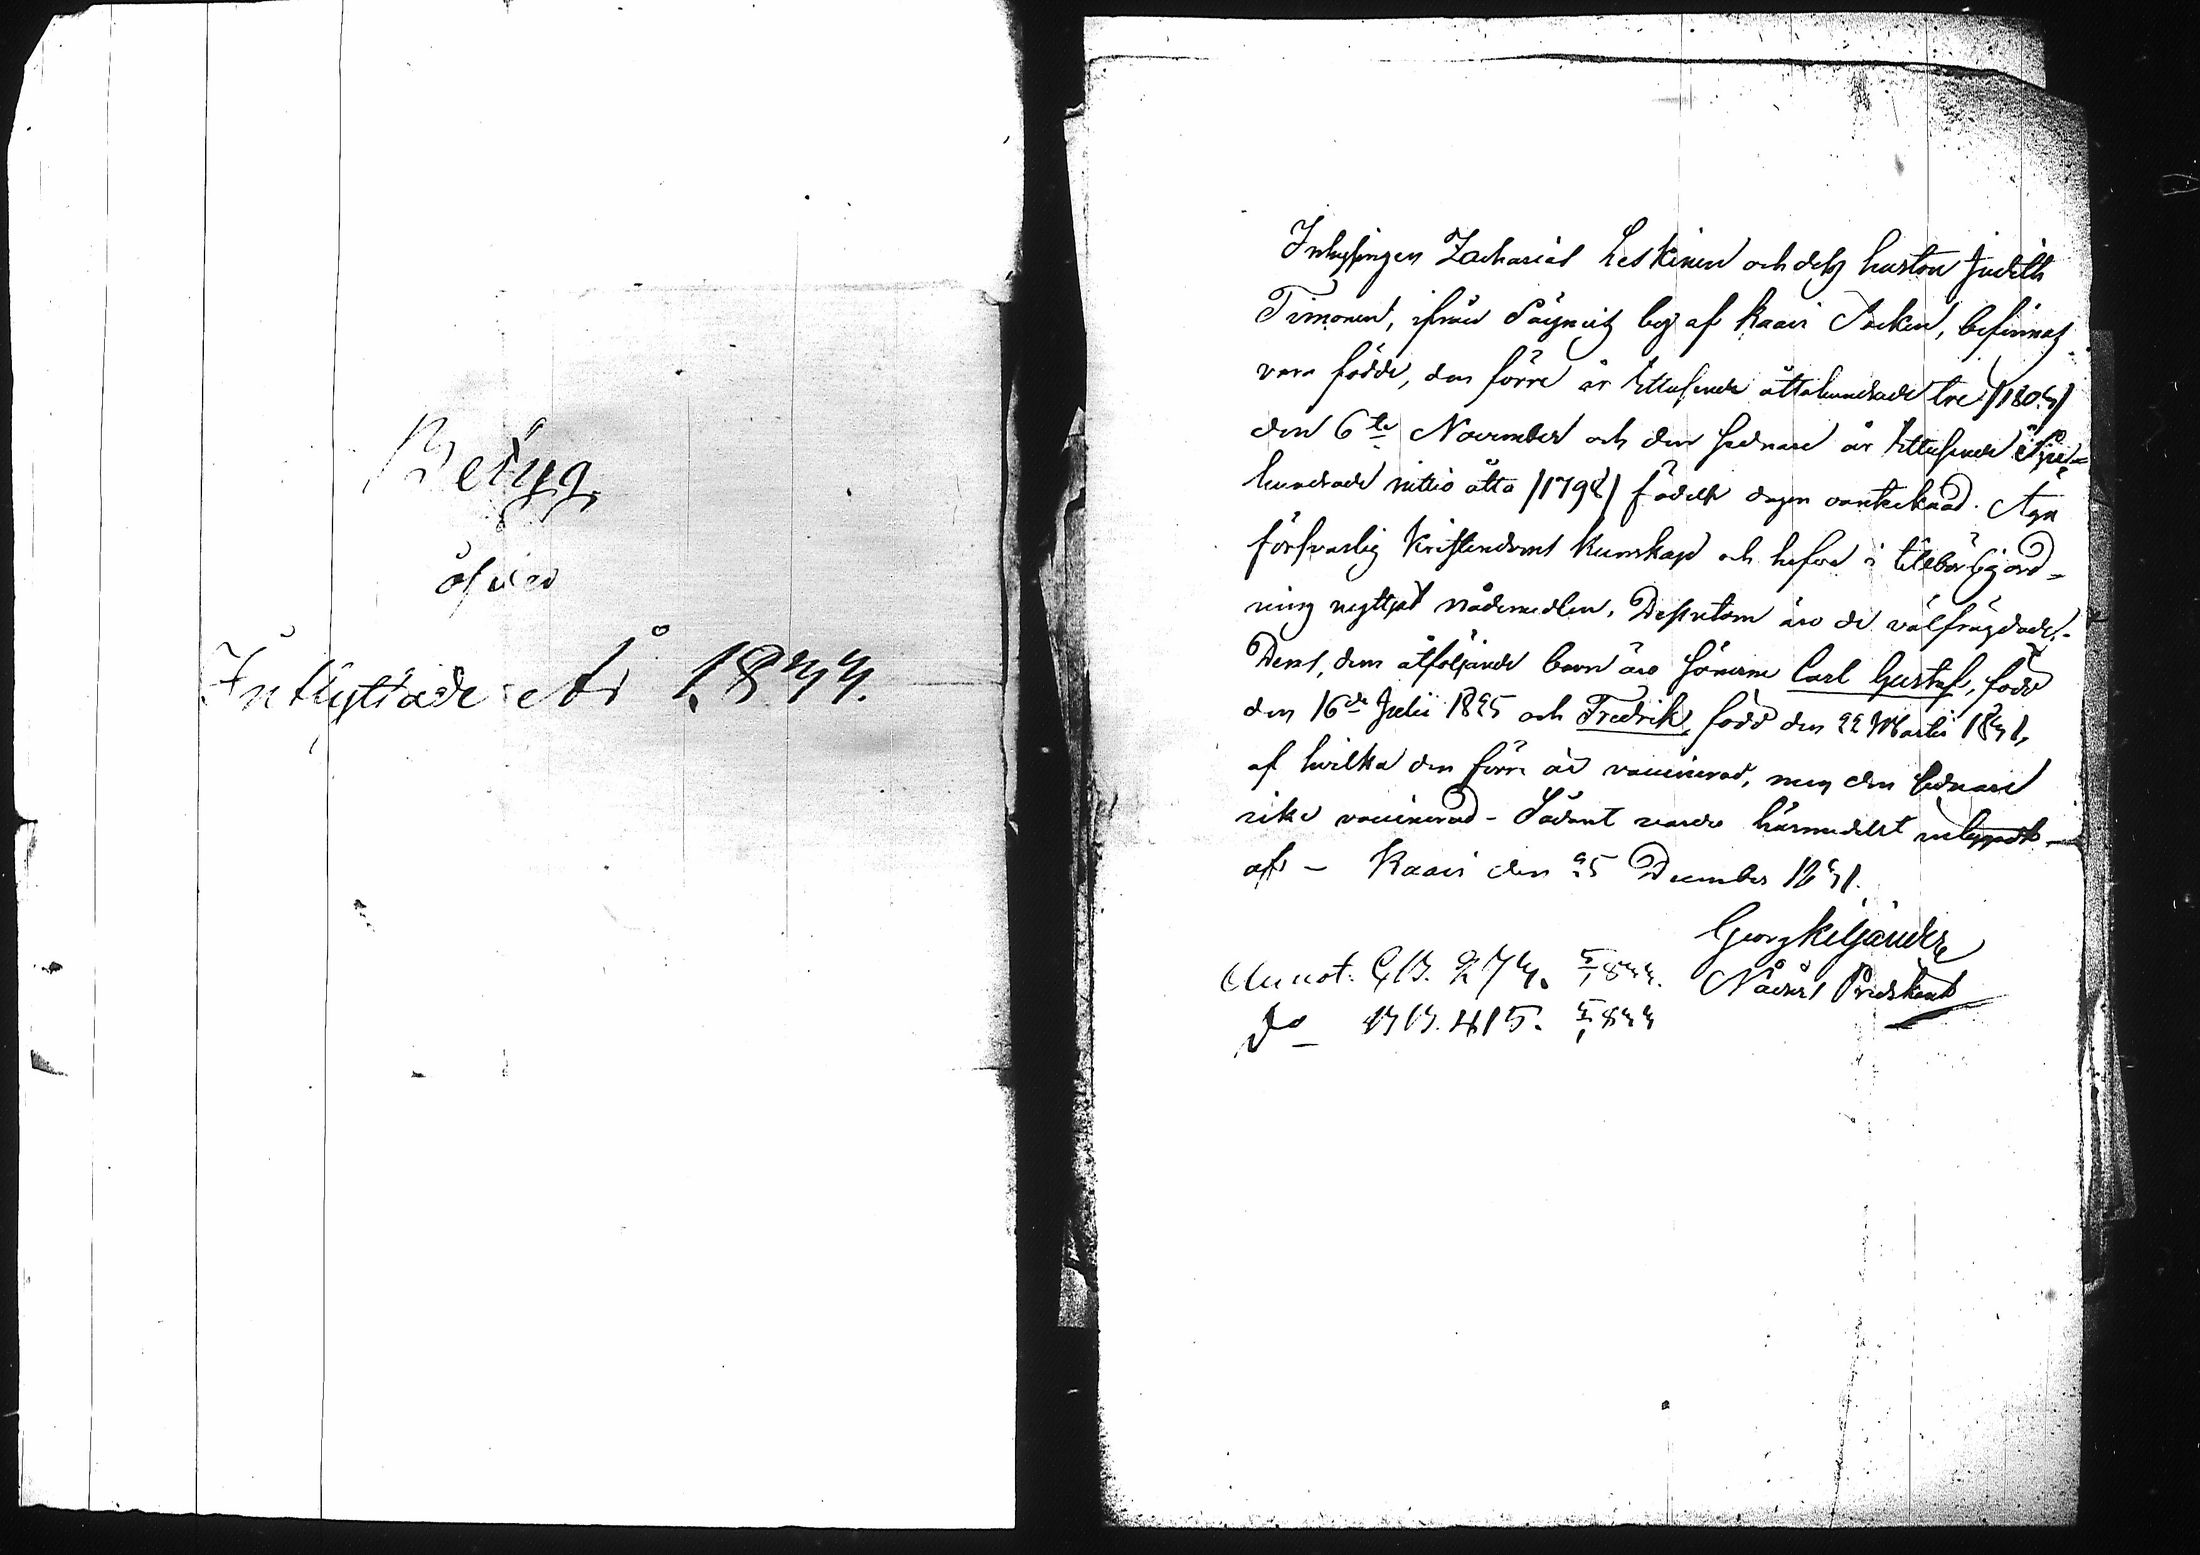 Betyg
öfver
Inflyttade År 1833.
Inhysingen Zacharias Leskinen och dess hustru Judith
Timonen, ifrån Säynejs by af Kaavi Socken, befinnas
vara födde, den förre år Ettusende åttahundrade tre /1803/
den 6te November och den sednare år Ettusende Sju-
hundrade nittio åtta /1798/ födelse dagen oantecknad. Äga
försvarlig Kristendoms Kunskap och hafva i tillbörlig ord-
ning nyttjat nådemedlen. Dessutom äro de välfrägdade.-
Deras, dem åtföljande barn äro sönerne Carl Gustaf, född
den 16de Julii 1825 och Fredrik, född den 22 Martii 1831,
af hvilka den förre är vaccinerad, men den sednare
icke vaccinerad - Sådant varder härmedelst
af - Kaavi den 25 December 1831.
Georg Kiljander
Annot. C,B. 273. 1833.
Nåders Predikant
do B,B. 415. 1833